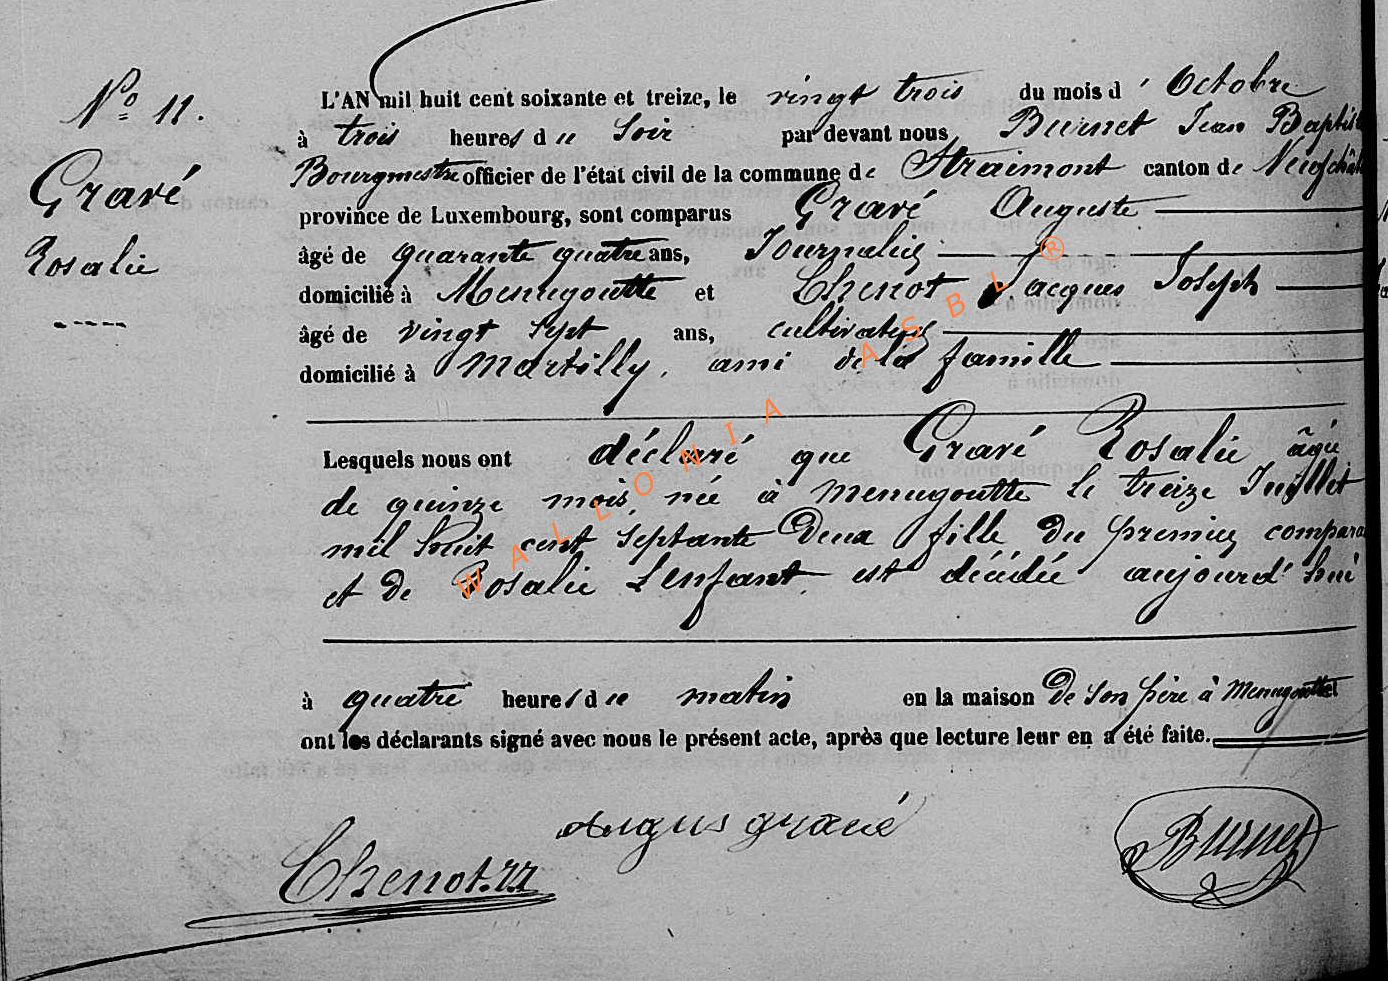 N° 11.
Gravé
Rosalie
L'AN mil huit cent soixante et treize, le vingt trois du mois d' Octobre
à trois heures du Soir par devant nous Burnet Jean Baptist
Bourgmestre officier de l'état civil de la commune de Straimont canton de Neufchât
province de Luxembourg, sont comparus Gravé Auguste
âgé de quarante quatre ans, Journalier
domicilié à Menugoutte et Chenot Jacques Joseph
âgé de vingt sept ans, cultivateur
domicilié à Martilly, ami de la famille
Lesquels nous ont déclaré que Gravé Rosalie âgée
de quinze mois, née à Menugoutte le treize Juillet
mil huit cent septante deux fille du premier compara
et de Rosalie Lenfant, est décédée aujourd'hui
à quatre heures du matin en la maison de son père à Menugoutte et
ont les déclarants signé avec nous le présent acte, après que lecture leur en a été faite.
augus gravé
Burnet
Chenot.JJ
WALLONIA ASBL ®